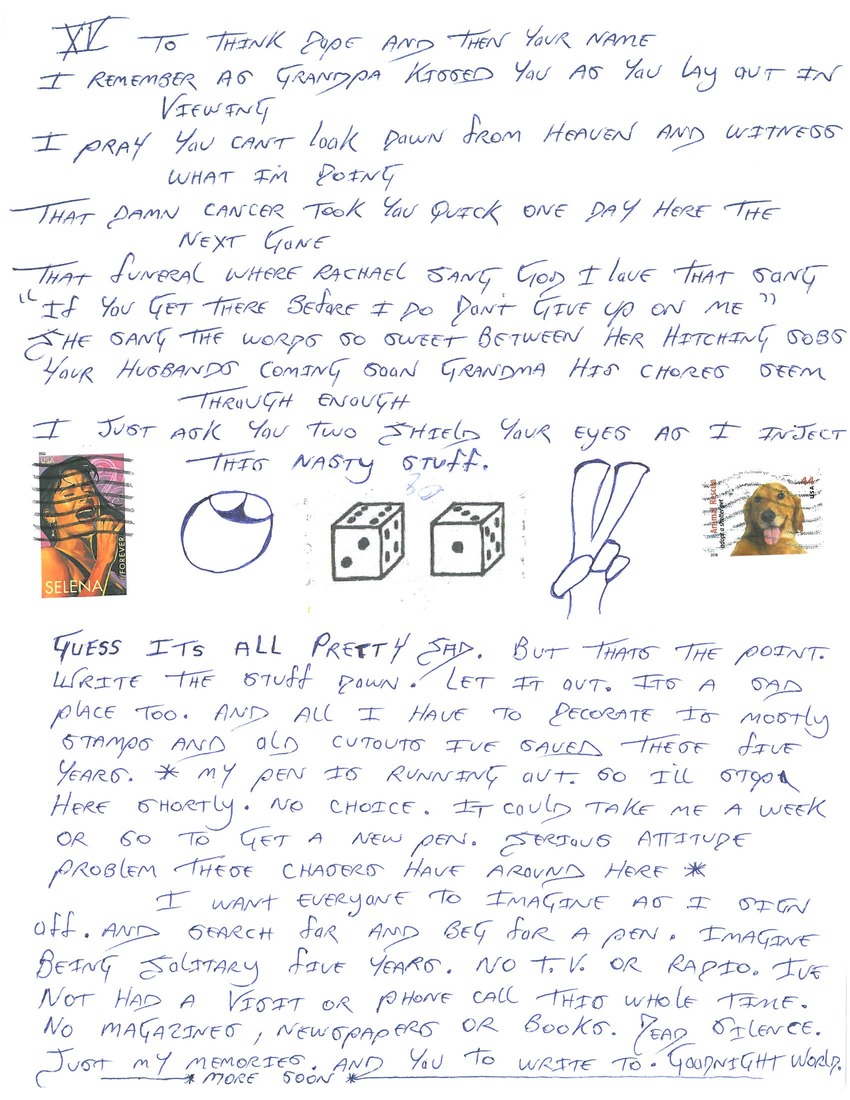 XV TO THINK DOPE AND THEN YOUR NAME
I REMEMBER AS GRANDPA KISSED YOU AS YOU LAY OUT IN
VIEWING
I PRAY YOU CANT LOOK DOWN FROM HEAVEN AND WITNESS
WHAT IM DOING
THAT DAMN CANCER TOOK YOU QUICK ONE DAY HERE THE
NEXT GONE
THAT FUNERAL WHERE RACHAEL SANG GOD I LOVE THAT SONG
"IF YOU GET THERE BEFORE I DO DON'T GIVE UP ON ME"
SHE SANG THE WORDS SO SWEET BETWEEN HER HITCHING SOBS
YOUR HUSBANDS COMING SOON GRANDMA HIS CHORES SEEM
THROUGH ENOUGH
I JUST ASK YOU TWO SHIELD YOUR EYES AS I INJECT
THIS NASTY STUFF.
USA
SELENA
FOREVER
Animal Rescue
adopt a shelter pet
44
USA
GUESS ITS ALL PRETTY SAD. BUT THATS THE POINT.
WRITE THE STUFF DOWN. LET IT OUT. ITS A SAD
PLACE TOO. AND ALL I HAVE TO DECORATE IS MOSTLY
STAMPS AND OLD CUTOUTS IVE SAVED THESE FIVE
YEARS. * MY PEN IS RUNNING OUT. SO ILL STOP
HERE SHORTLY. NO CHOICE. IT COULD TAKE ME A WEEK
OR SO TO GET A NEW PEN. SERIOUS ATTITUDE
PROBLEM THESE CHASERS HAVE AROUND HERE *
I WANT EVERYONE TO IMAGINE AS I SIGN
OFF. AND SEARCH FOR AND BEG FOR A PEN. IMAGINE
BEING SOLITARY FIVE YEARS. NO T.V. OR RADIO. IVE
NOT HAD A VISIT OR PHONE CALL THIS WHOLE TIME.
NO MAGAZINES, NEWSPAPERS OR BOOKS. DEAD SILENCE.
JUST MY MEMORIES. AND YOU TO WRITE TO. GOODNIGHT WORLD.
* MORE SOON *